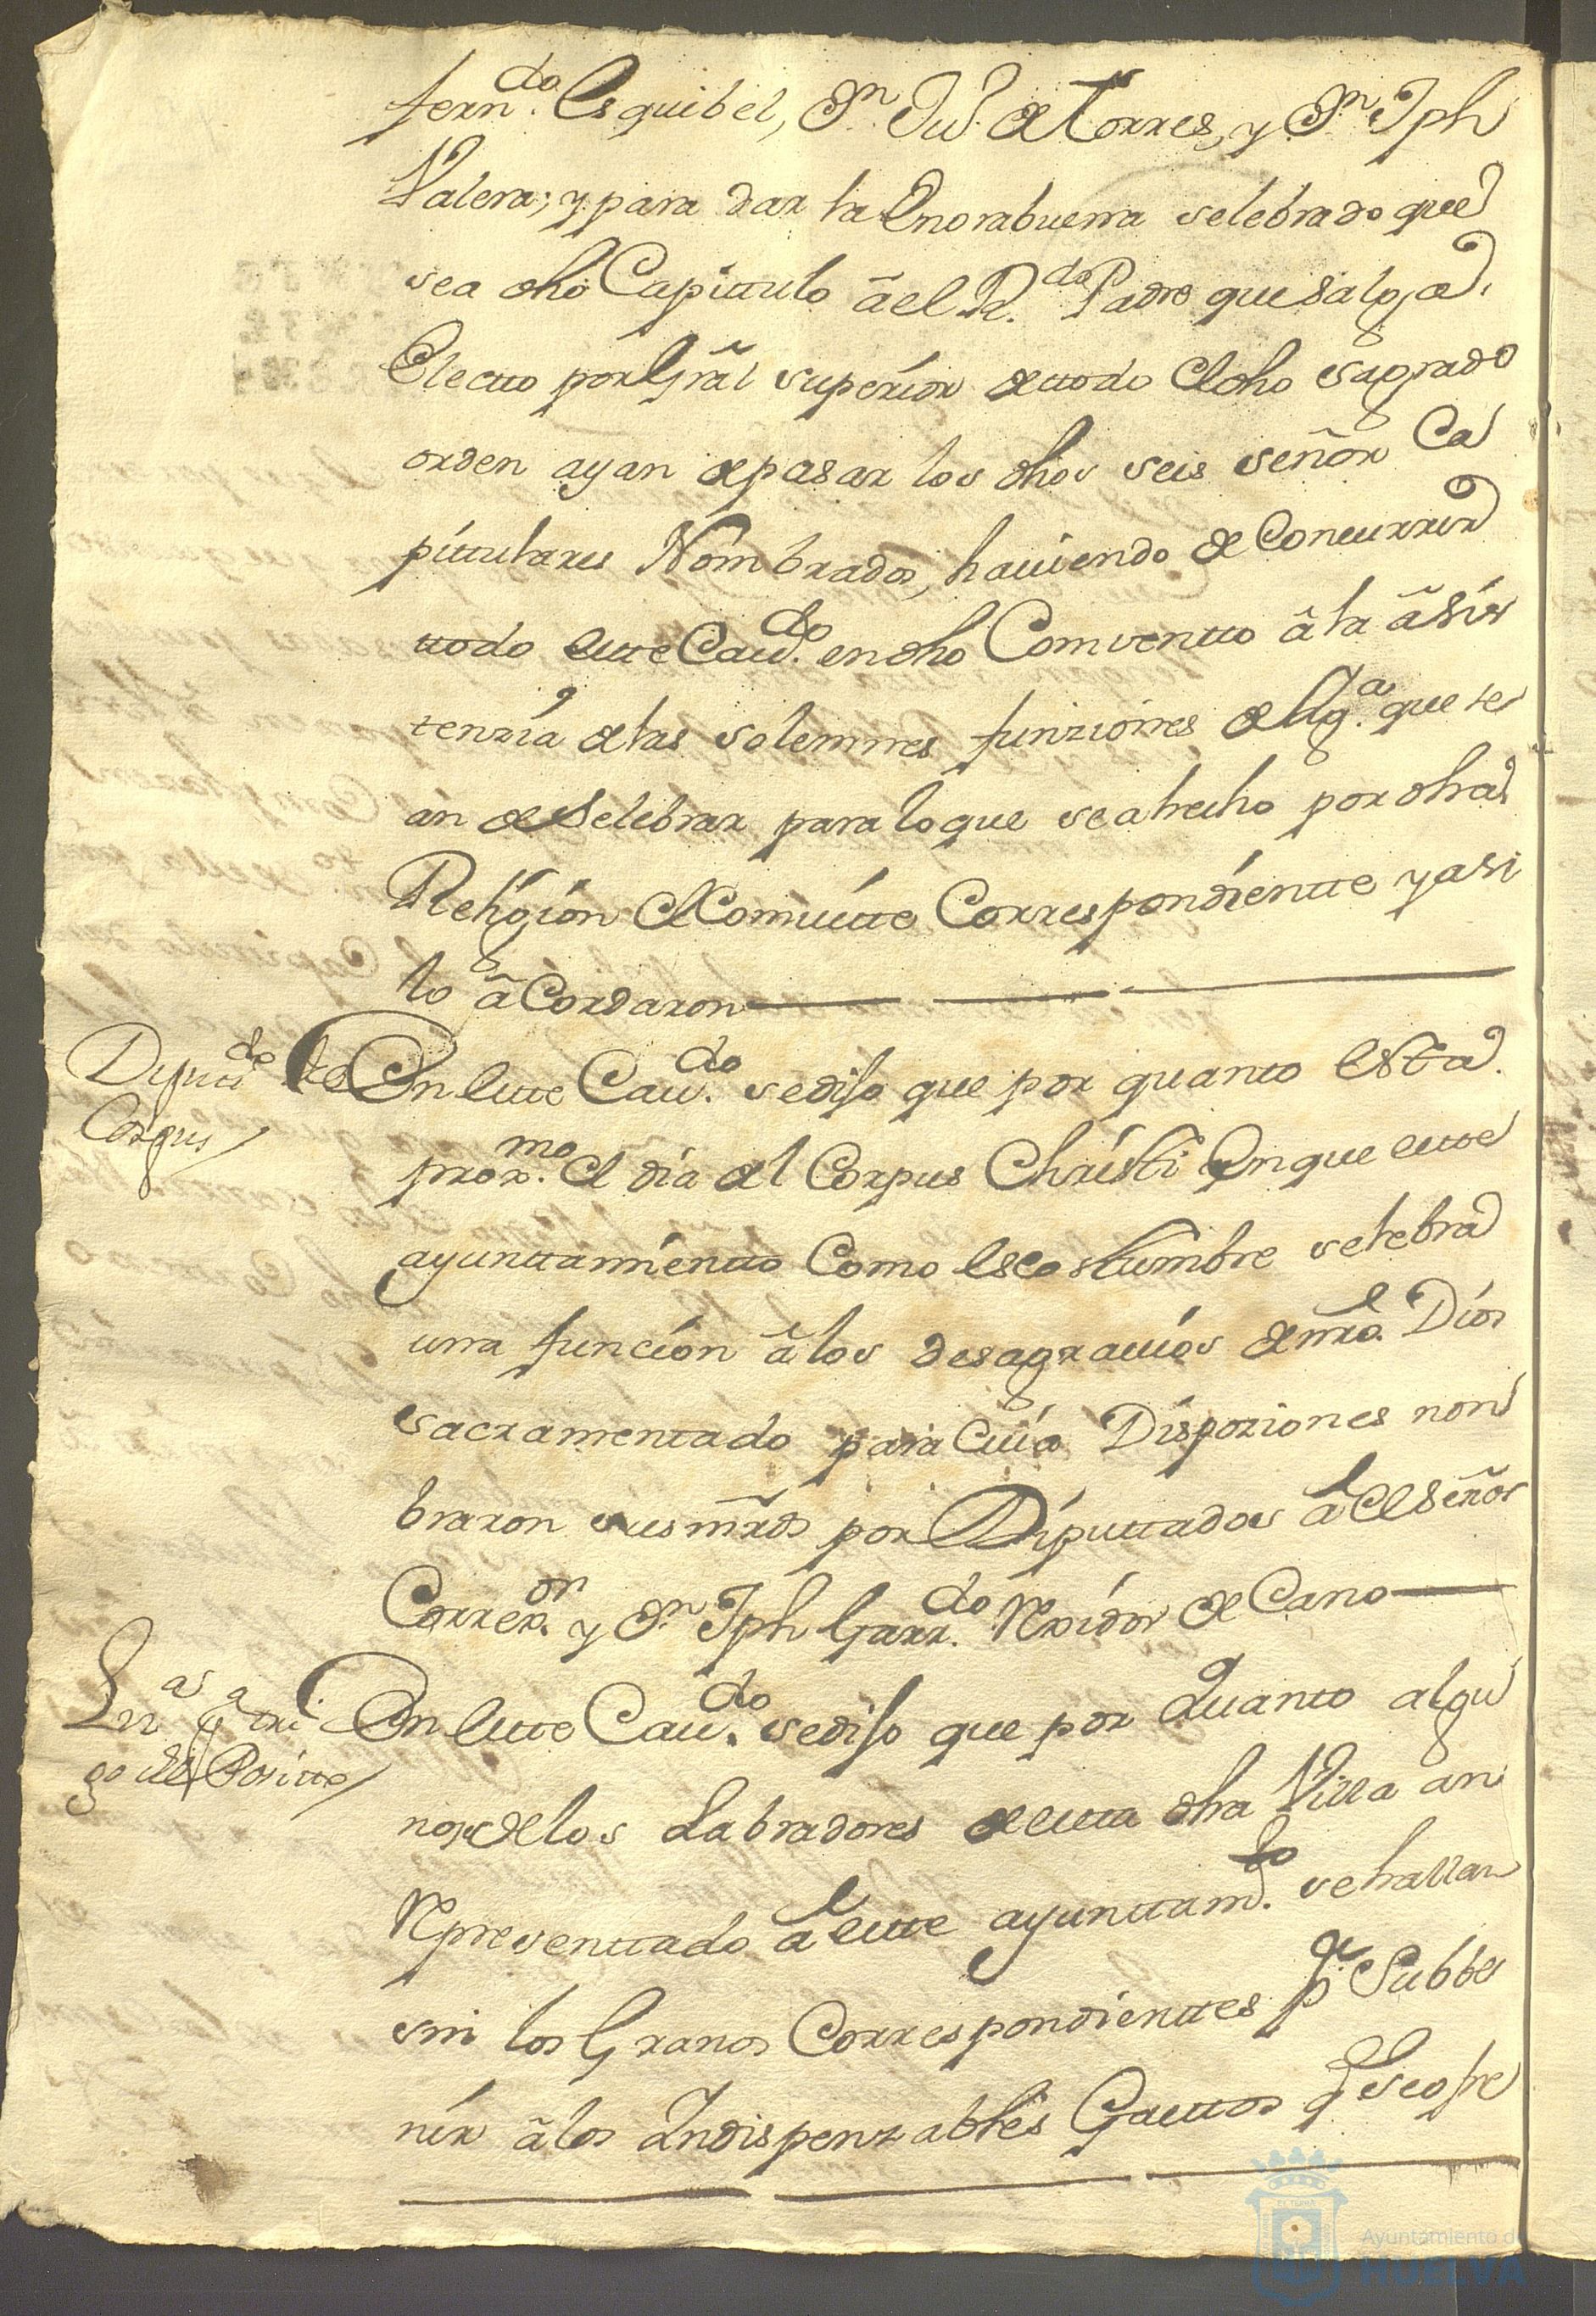 fern.do Esquibel, Dn Ju.o de Torres, y Dn Jph
Valera; y para dar la Enorabuena selebrado que
sea dho Capittulo â el R.do Padre que salga
Electto por Gral superior de ttodo el dho sagrado
orden ayan de pasar los dhos seis señor Ca
pittulares Nombrados, haviendo de Concurrir
ttodo estte Cav.do en dho Comventto â la âsis
tenzia de las solemnes funziones de Ygª que se
an de Selebrar para lo que se a hecho por dha
Religion el Comvitte Correspondientte y asi
lo âCordaron
Diputt.do de
Corpus
En estte Cav.do se diso que por quanto Esta
prox.mo el dia del Corpus Christi En que estte
ayunttamientto Como es costtumbre selebra
una funcion â los desagravios de nro Dios
sacramentado para Cuia Disposiones non
braron sus mrds por Diputtados â el señor
Correx.or y Dn Jph Garr.do Rexidor de Cano
Liz.as a tri
go del Positto
En estte Cav.do se diso que por quanto algu
nos de los Labradores de estta dha Villa an
Representtado â estte ayunttam.to se hallan
sin los Granos Correspondienttes pª Subbe
nir â los Indispenzables Gasttos q se ofre
Ayuntamiento de
HUELVA